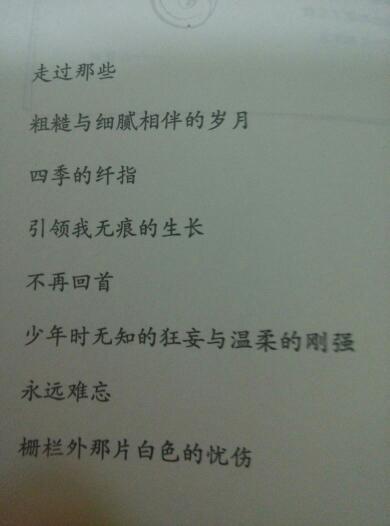 走过那些
粗糙与细腻相伴的岁月
四季的纤指
引领我无痕的生长
不再回首
少年时无知的狂妄与温柔的刚强
永远难忘
栅栏外那片白色的忧伤